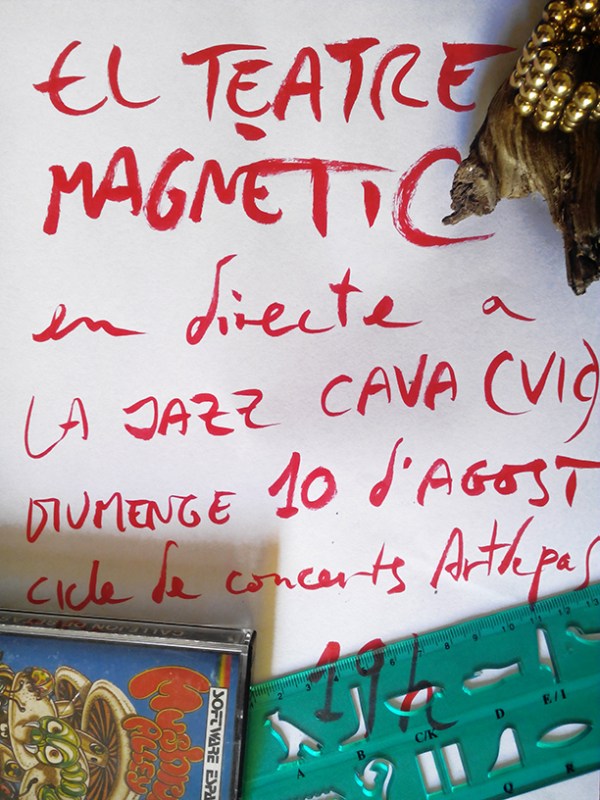 EL TEATRE
MAGNÈTIC
en directe a
LA JAZZ CAVA (VIC)
DIUMENGE 10 d'AGOST
cicle de concerts Artdepas
19h
SOFTWARE
MUSHROOM
ALLEY
1 2 3 4 5 6 7 8 9 10 11 12 13
A B C/K D E/I
Q R